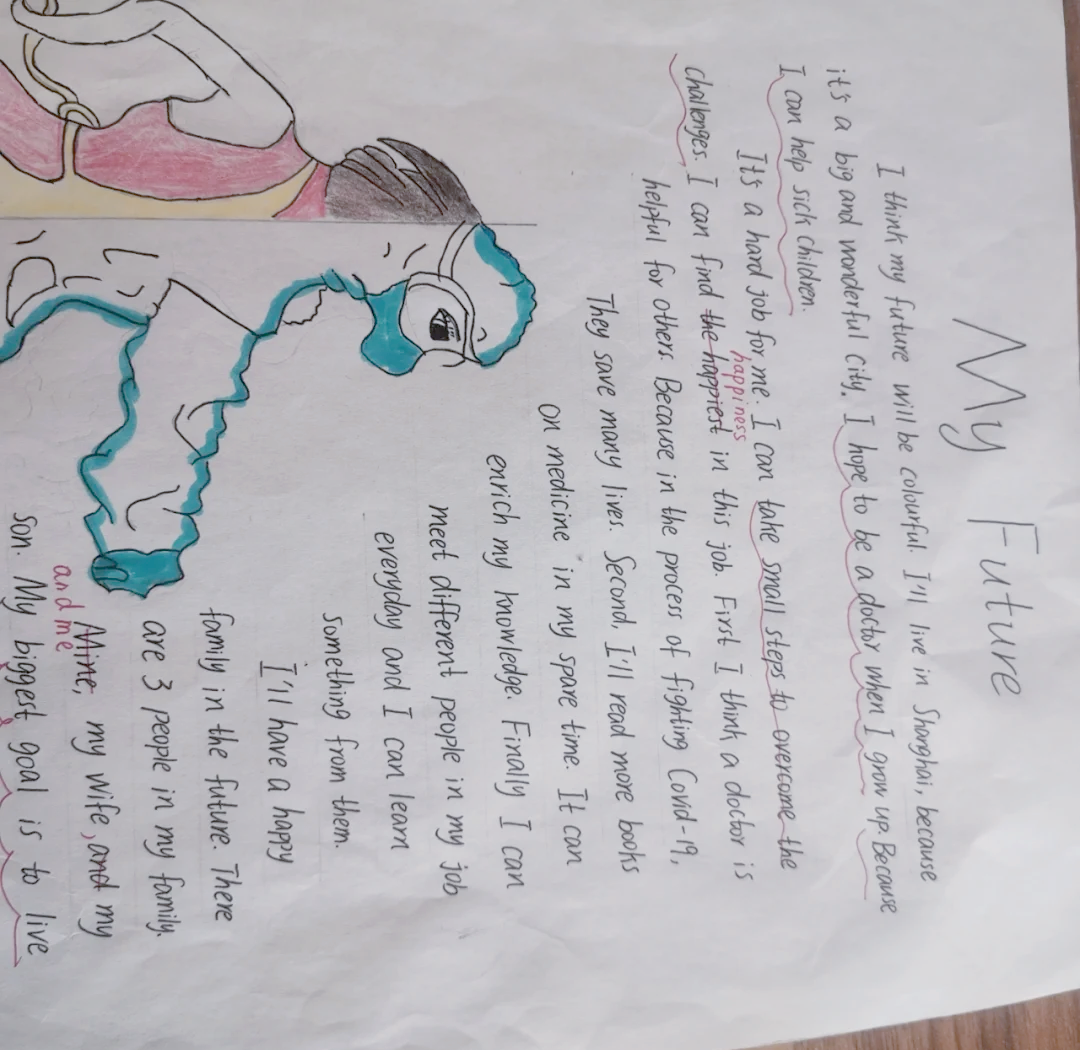 My Future
I think my future will be colourful. I'll live in Shanghai, because
it's a big and wonderful city. I hope to be a doctor when I grow up. Because
I can help sick children.
It's a hard job for me. I can take small steps to overcome the
happiness
challenges. I can find the happiest in this job. First I think a doctor is
helpful for others. Because in the process of fighting Covid-19,
They save many lives. Second, I'll read more books
on medicine in my spare time. It can
enrich my knowledge. Finally I can
meet different people in my job
everyday and I can learn
something from them.
I'll have a happy
family in the future. There
are 3 people in my family.
and me
Mine, my wife, and my
son. My biggest goal is to live